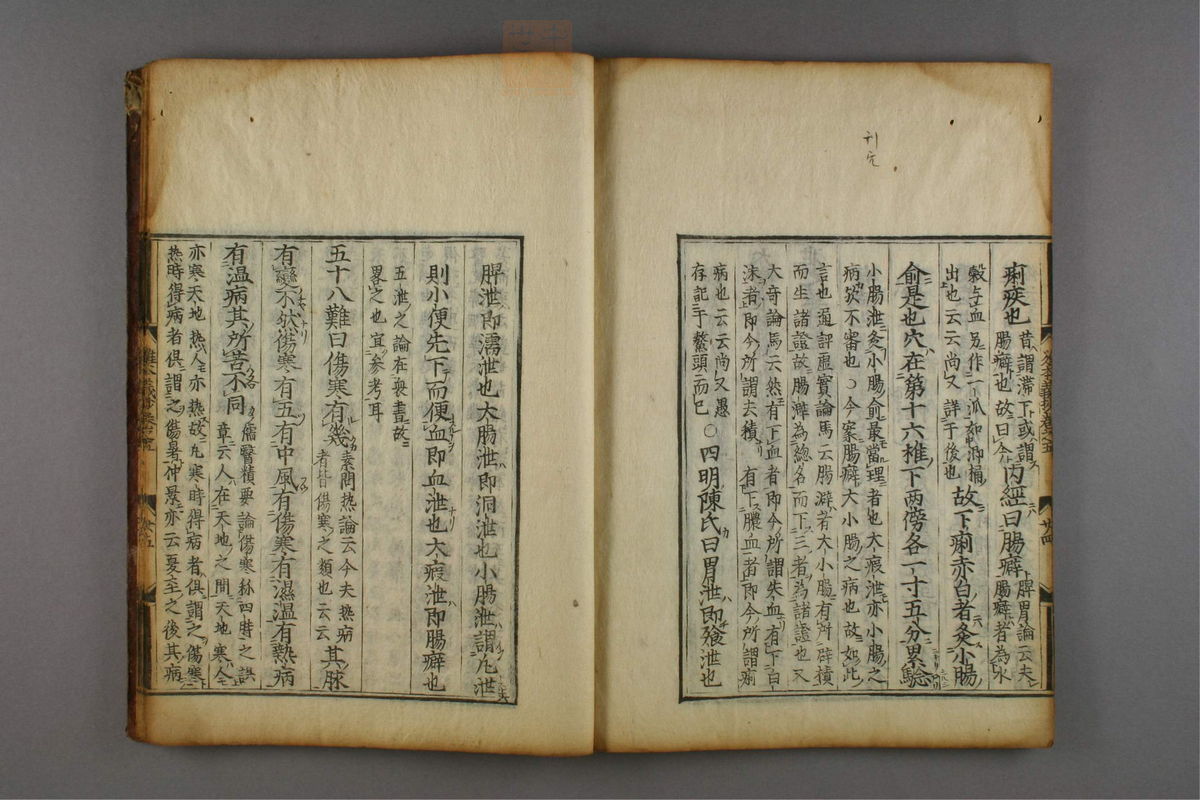 痢疾也昔謂滯下或謂腸癖也故曰今内經曰腸癖脾胃論云夫腸癖者為水
穀与血另作一派如㴒桶出也云云尚又詳于後也故下痢赤白者灸小腸
俞是也穴在第十六推下两傍各一寸五分累驗
小腸泄灸小腸俞最當理者也大瘕泄亦小腸之
病欤不審也○今案腸癖大小腸之病也故如此
言也通評虛實論馬云腸澼者大小腸有所辟積
而生諸證故腸澼為総名而下三者為諸證也又
大奇論馬云然有下血者即今所謂失血有下白
沫者即今所謂去積有下膿血者即今所謂痢
病也云云尚又愚
存記于鼇頭而已○四明陳氏曰胃泄即飱泄也
脾泄即濡泄也大腸泄即洞泄也小腸泄謂凡泄
則小便先下而便血即血泄也大瘕泄即腸癖也
五泄之論在喪書故
畧之也宜参考耳
五十八難曰傷寒有幾素問熱論云今夫熱病者皆傷寒之類也云云其脉
有變不然傷寒有五有中風有傷寒有濕温有熱病
有温病其所苦不同儒醫積要論傷寒称四時之誤章云人在天地之間天地寒人
亦寒天地熱人亦熱故凡寒時得病者俱謂之傷寒
熱時得病者俱謂之傷暑仲景亦云夏至之後其病
刊完
廿四
廿五